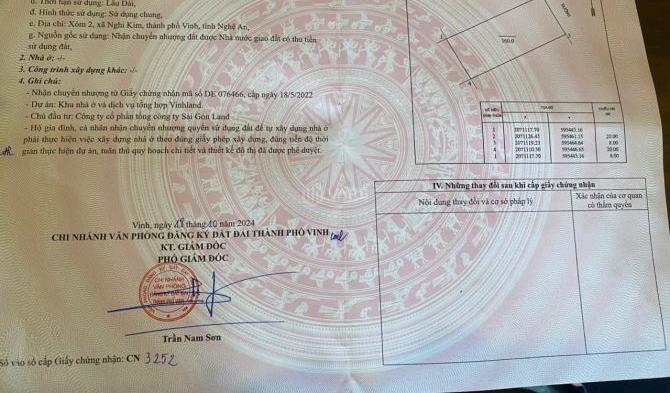 d. Thời hạn sử dụng: Lâu Dài,
đ. Hình thức sử dụng: Sử dụng chung,
e. Địa chỉ: Xóm 2, xã Nghi Kim, thành phố Vinh, tỉnh Nghệ An,
g. Nguồn gốc sử dụng: Nhận chuyển nhượng đất được Nhà nước giao đất có thu tiền
sử dụng đất,
2. Nhà ở: -/-
3. Công trình xây dựng khác: -/-
4. Ghi chú:
- Nhận chuyển nhượng từ Giấy chứng nhận mã số DE 076466, cấp ngày 18/5/2022
- Dự án: Khu nhà ở và dịch vụ tổng hợp Vinhland.
- Chủ đầu tư: Công ty cổ phần tổng công ty Sài Gòn Land
- Hộ gia đình, cá nhân nhận chuyển nhượng quyền sử dụng đất để tự xây dựng nhà ở
phải thực hiện việc xây dựng nhà ở theo đúng giấy phép xây dựng, đúng tiến độ thời
gian thực hiện dự án, tuân thủ quy hoạch chi tiết và thiết kế đô thị đã được phê duyệt.
Vinh, ngày 28 tháng 10 năm 2024
CHI NHÁNH VĂN PHÒNG ĐĂNG KÝ ĐẤT ĐAI THÀNH PHỐ VINH
KT. GIÁM ĐỐC
PHÓ GIÁM ĐỐC
CHI NHÁNH
VĂN PHÒNG
Trần Nam Sơn
Số vào sổ cấp Giấy chứng nhận: CN 3252
1
160.0
4
1 2071117.70 595443.16
2 2071126.45 595461.15 20.00
3 2071119.23 595464.64 8.00
4 2071110.50 595446.65 20.00
1 2071117.70 595443.16 8.00
IV. Những thay đổi sau khi cấp giấy chứng nhận
Nội dung thay đổi và cơ sở pháp lý
Xác nhận của cơ quan
có thẩm quyền